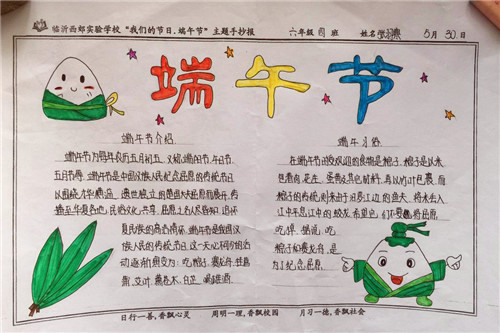 临沂西郊实验学校“我们的节日,端午节”主题手抄报 六年级 四 班 姓名 5月30日
端午节
端午节介绍
端午节为每年农历五月初五,又称端阳节、午日节、
五月节等。端午节是中国汉族人民纪念屈原的传统节日
以围绕才华横溢、遗世独立的楚国大夫屈原而展开,传
播至华夏各地,民俗文化共享,屈原之名人尽皆知,追怀
夏民族的高洁情怀。端午节是中国汉
族人民的传统节日这一天必不可少的活
动逐渐演变为:吃粽子,赛龙舟,挂菖
蒲、艾叶、薰苍术、白芷、喝雄黄酒。
端午习俗
在端午节最受欢迎的食物是粽子。粽子是以米
包着肉
粽子的传统则来由于汨罗江边的渔夫,将米丢入
江中平息江中的蛟龙,希望它们不要
吃掉
粽子和赛龙舟,是
为了纪念屈原。
日行一善,香飘心灵 周明一理,香飘校园 月习一德,香飘社会